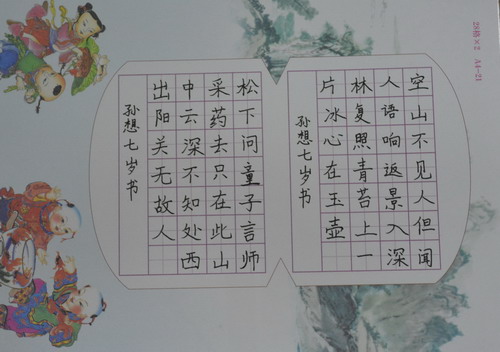 空山不见人但闻
人语响返景入深
林复照青苔上一
片冰心在玉壶
孙想七岁书
松下问童子言师
采药去只在此山
中云深不知处西
出阳关无故人
孙想七岁书
28格×2 A4-21